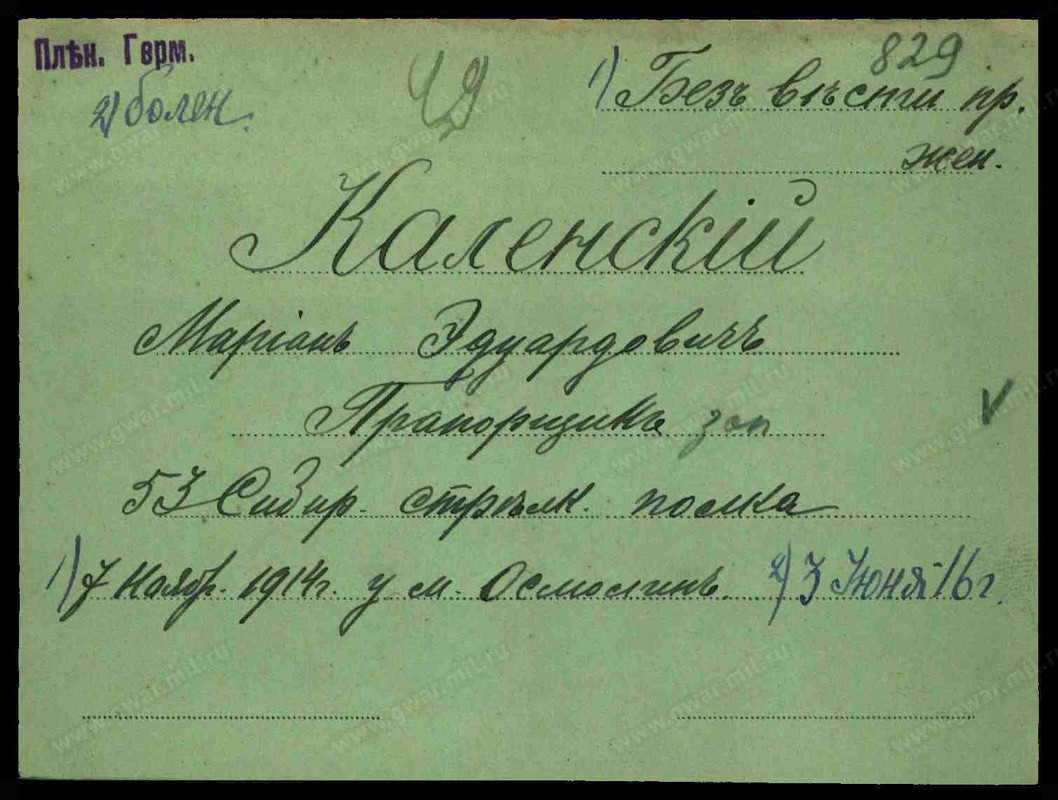 Плѣн. Герм.
829
2) болен.
49
1) Безъ вѣсти пр.
жен.
Каленскій
Маріанъ Эдуардовичъ
Прапорщикъ зап
53 Сибир. стрѣлк. полка
1) 7 Ноябр. 1914г. у м. Осмолинъ. 2) 3 Июня 16 г.
www.gwar.mil.ru